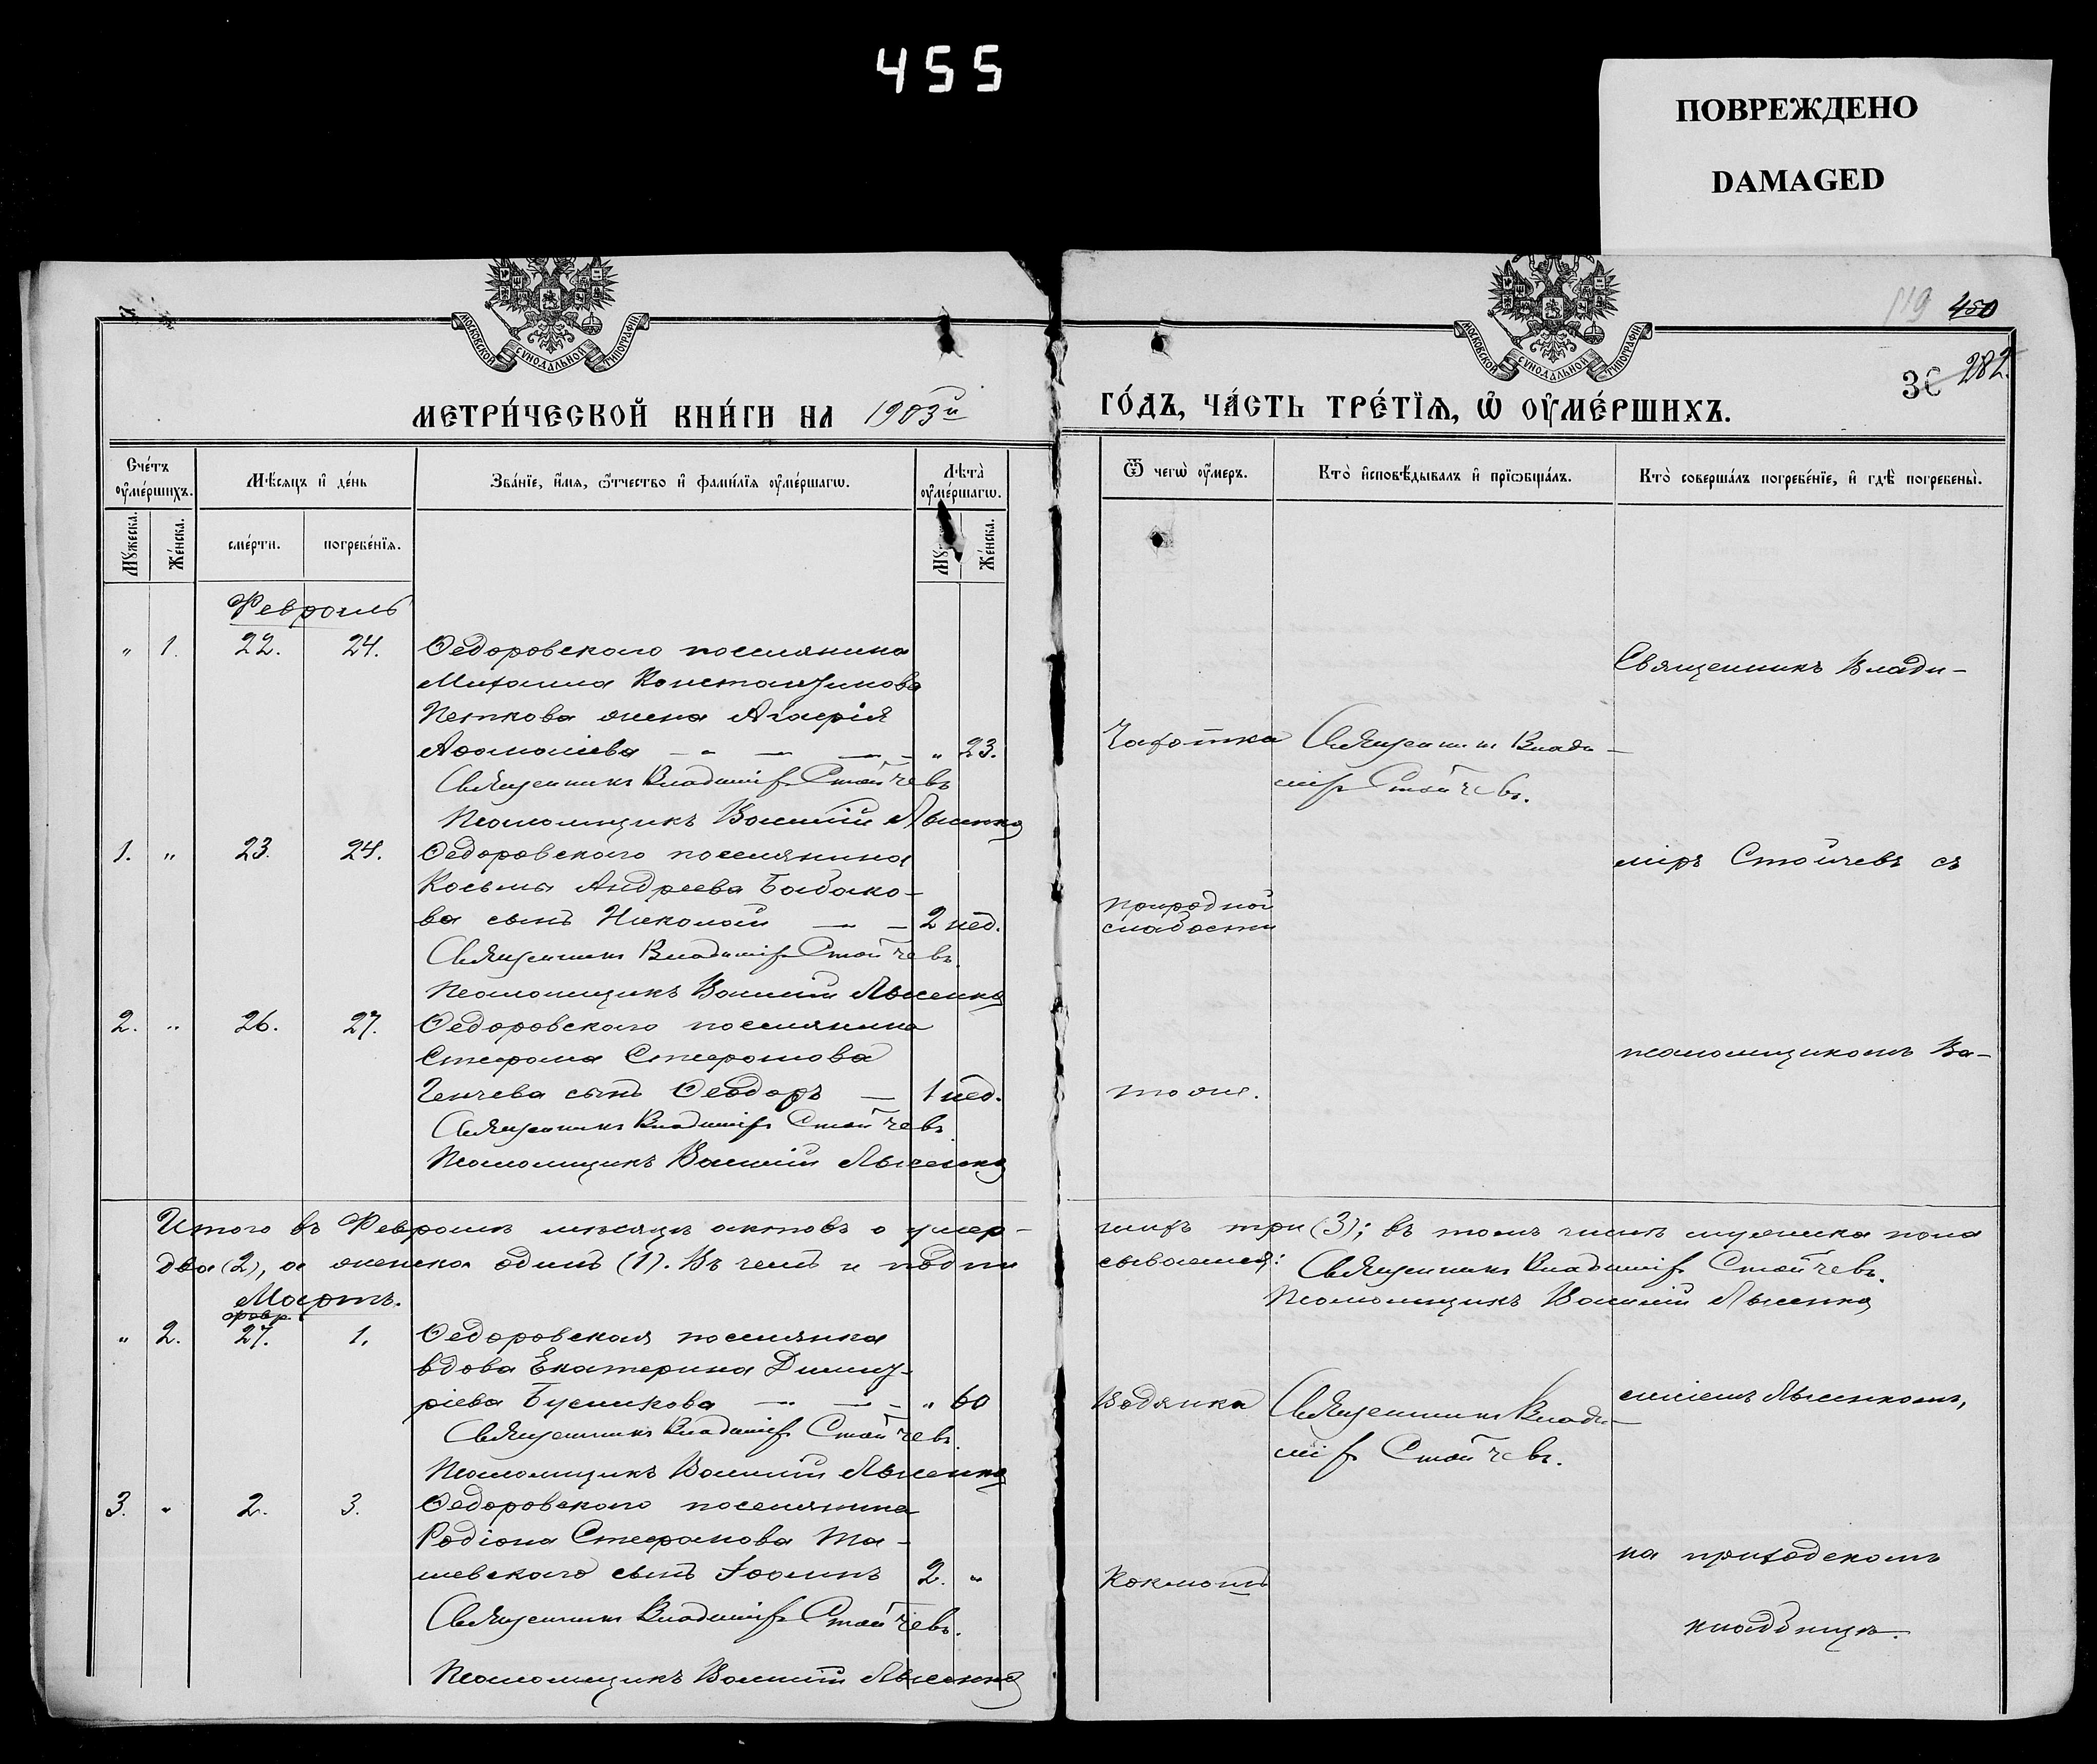 455
ПОВРЕЖДЕНО
DAMAGED
МОСКОВСКОЙ СѴНОДАЛЬНОЙ ТИПОГРАФІИ
МОСКОВСКОЙ СѴНОДАЛЬНОЙ ТИПОГРАФІИ
119 450
282.
МЕТРИ́ЧЕСКОЙ КНИ́ГИ НА 1903й
ГО́ДЪ, ЧА́СТЬ ТРЕ́ТЇѦ, Ѡ҆ ОУ҆МЕ́РШИХЪ.
Сче́тъ оу҆ме́ршихъ.
Мѣ́сѧцъ и҆ де́нь
Зва́нїе, и҆́мѧ, ѻ҆́тчество и҆ фами́лїѧ оу҆ме́ршагѡ.
Лѣ̀та оу҆ме́ршагѡ.
Ѿ чегѡ̀ оу҆́меръ.
Кто̀ и҆сповѣ́дывалъ и҆ прїѡбща́лъ.
Кто̀ соверша́лъ погребе́нїе, и҆ гдѣ̀ погребены̀.
Мꙋ́жеска.
Же́нска.
сме́рти.
погребе́нїѧ.
Же́нска.
Февраль
" 1. 22. 24. Ѳедоровскаго поселянина
Михаила Константинова
Петкова жена Агаѳія
Аѳанасіева — " 23.
Чахотка
Священникъ Влади-
міръ Стойчевъ.
Священникъ Влади-
Священникъ Владиміръ Стойчевъ
Псаломщикъ Василій Лысенко
1. " 23. 24. Ѳедоровскаго поселянина
Косьмы Андреева Бабако-
ва сынъ Николай — 2 нед.
природной
слабости
міръ Стойчевъ съ
Священникъ Владиміръ Стойчевъ.
Псаломщикъ Василій Лысенко
2. " 26. 27. Ѳедоровскаго поселянина
Стефана Стефанова
Генчева сынъ Ѳеодоръ — 1 нед.
тоже.
псаломщикомъ Ва-
Священникъ Владиміръ Стойчевъ
Псаломщикъ Василій Лысенко
Итого въ Февралѣ мѣсяцѣ актовъ о умер- шихъ три (3); въ томъ числѣ мужеска пола
два (2), а женска одинъ (1). Въ чемъ и подпи сываемся: Священникъ Владиміръ Стойчевъ.
Псаломщикъ Василій Лысенко
Мартъ.
февр.
" 2. 27. 1. Ѳедоровская поселянка
вдова Екатерина Димит-
ріева Бусникова — " 60
Водянка
Священникъ Влади-
міръ Стойчевъ.
силіемъ Лысенкомъ,
Священникъ Владиміръ Стойчевъ.
Псаломщикъ Василій Лысенко
3. " 2. 3. Ѳедоровскаго поселянина
Родіона Стефанова Та-
шевскаго сынъ Іоаннъ 2. "
Коклюшъ
на приходскомъ
кладбищѣ.
Священникъ Владиміръ Стойчевъ.
Псаломщикъ Василій Лысенко